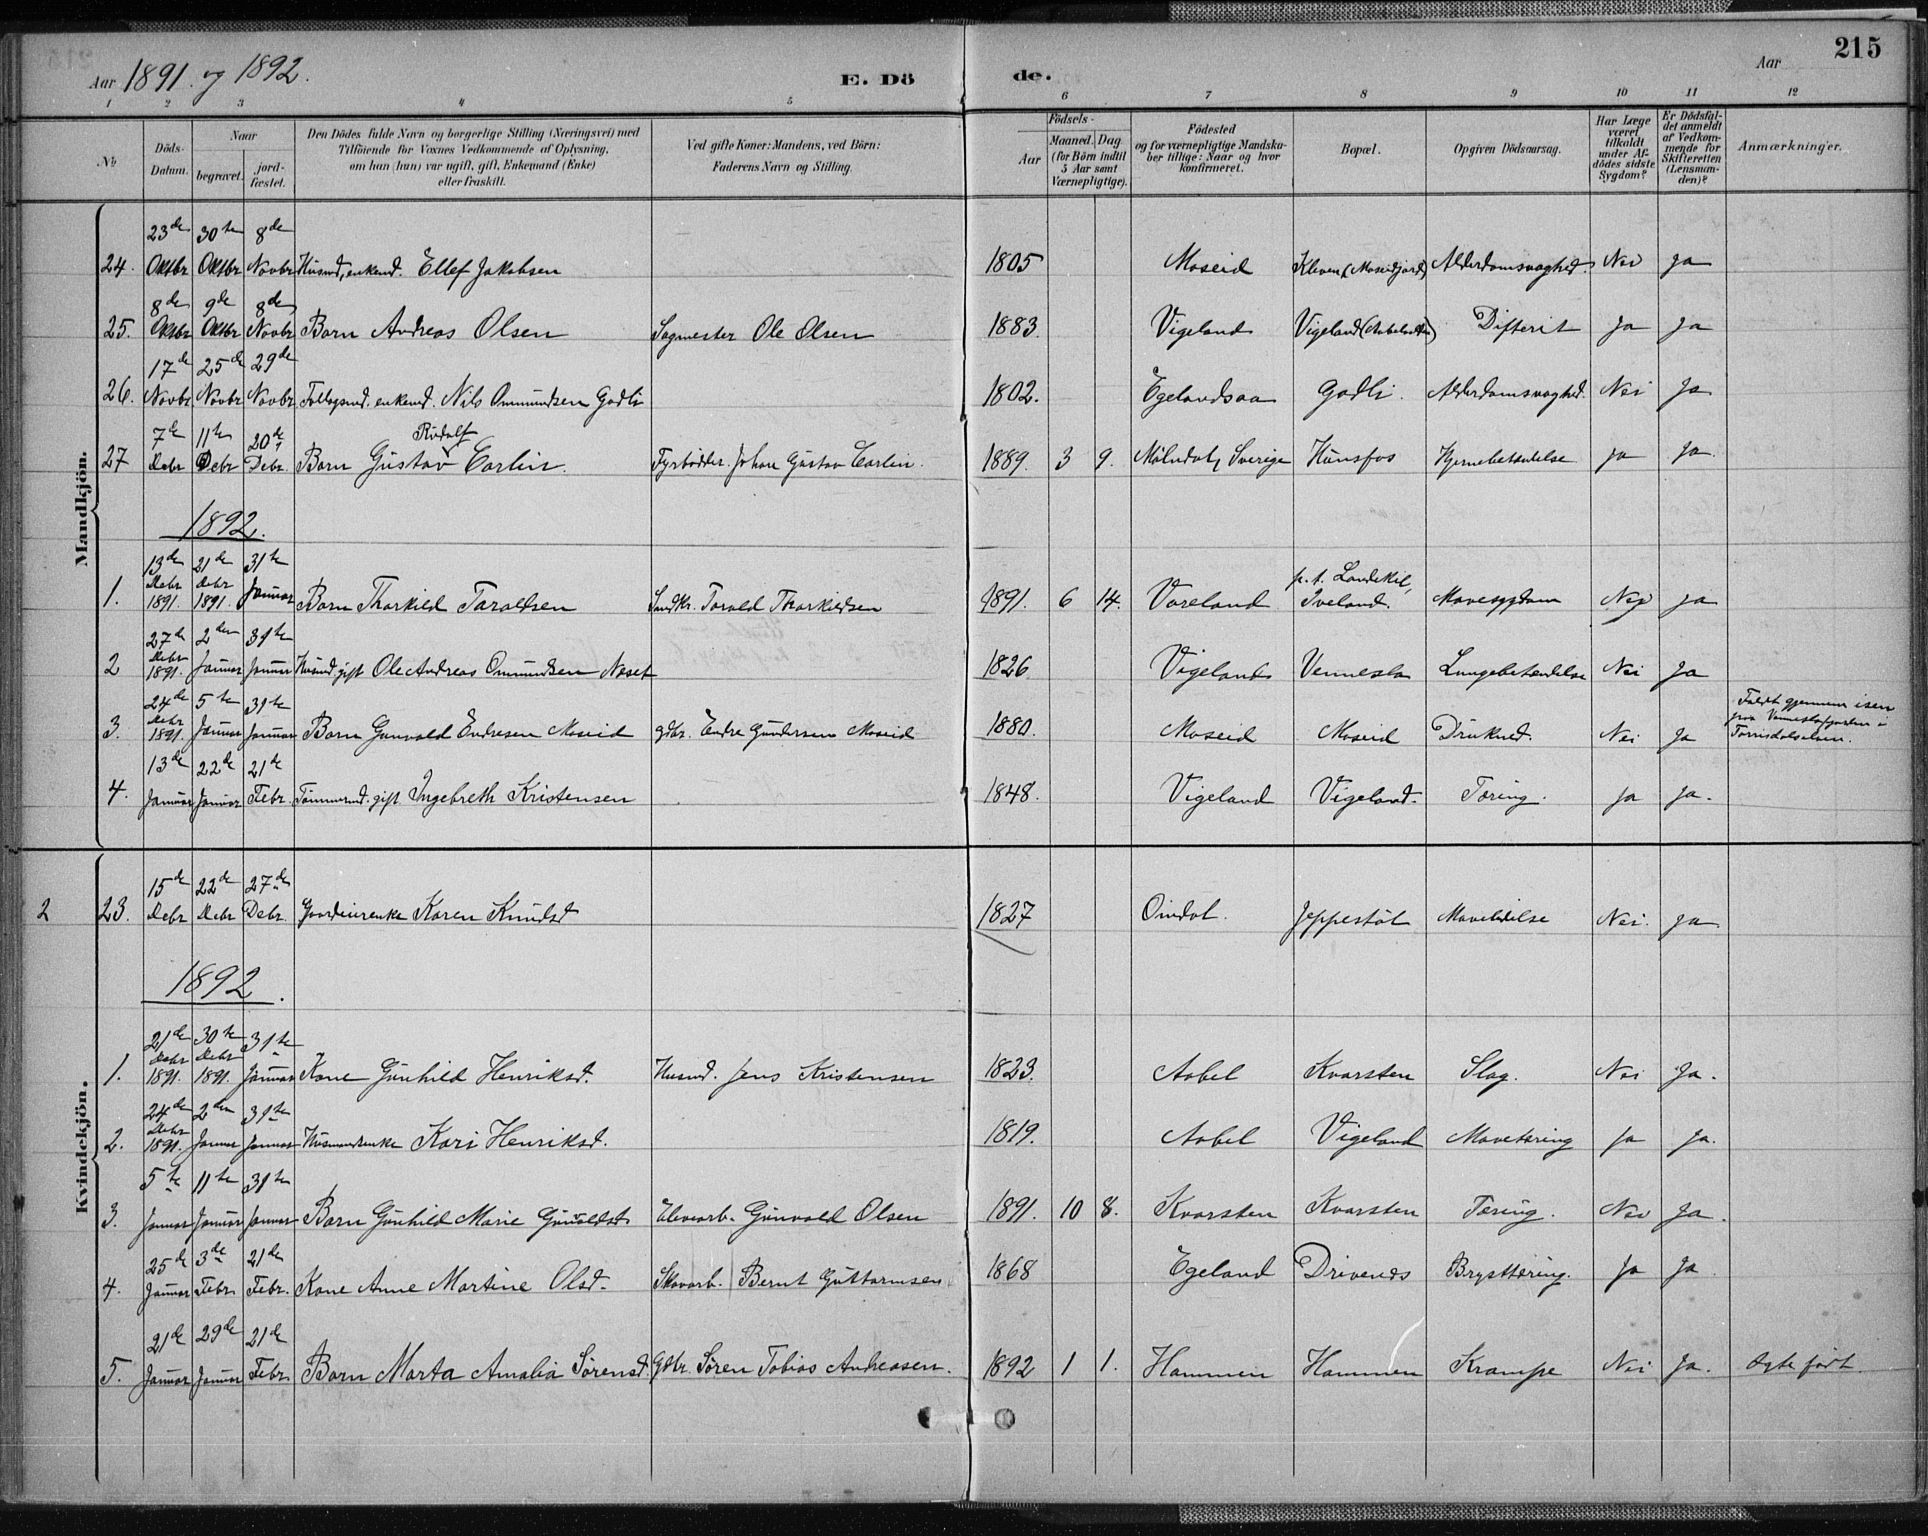 215
Aar 1891. og 1892. E. Dö de. Aar
1 2 3 4 5 6 7 8 9 10 11 12
№ Döds-Datum. Naar begravet. jord-fæstet. Den Dödes fulde Navn og borgerlige Stilling (Næringsvei) med Tilföiende for Voxnes Vedkommende af Oplysning, om han (hun) var ugift, gift, Enkemand (Enke) eller fraskilt. Ved gifte Koner: Mandens, ved Börn: Faderens Navn og Stilling. Födsels- Aar Maaned. Dag (for Börn indtil 5 Aar samt Værnepligtige). Födested og for værnepligtige Mandskaber tillige: Naar og hvor konfirmeret. Bopæl. Opgiven Dödsaarsag. Har Læge været tilkaldt under Afdödes sidste Sygdom? Er Dödsfaldet anmeldt af Vedkommende for Skifteretten (Lensmanden)? Anmærkninger.
Mandkjön.
23de 30te 8de
24. Oktbr Oktbr Novbr Husmd, enkemd. Ellef Jakobsen 1805 Moseid Kleven, (Moseidjord) Alderdomsvaghed. Nei Ja
8de 9de 8de
25. Oktbr Oktbr Novbr Barn Andreas Olsen Sagmester Ole Olsen 1883. Vigeland Vigeland Difterit Ja Ja
17de 25de 29de
26. Novbr. Novbr Novbr enkemd. Nils Ommundsen Godli 1802. Egelandsaa Godli. Alderdomsvaghed. Nei Ja
7de 11te 20de Rudolf
27 Debr Debr Debr. Barn Gustav Carlin. Fyrbødder. Johan Gustav Carlin. 1889. 3 9. Mölndal, Sverige Hunsfos Hjernebetændelse Ja Ja.
1892.
13de 21de 31te
Debr Debr p. t. Landekil,
1. 1891. 1891. Januar Barn Tharkild Taraldsen Smdkr. Tarald Tharkildsen 1891. 6 14. Vareland Iveland. Mavesygdom Nej Ja
27de 2den 31te
Debr
2 1891. Januar Januar Husmd gift Ole Andreas Ommundsen Neset 1826 Vigeland Vennesla Lungebetændelse Nei Ja
24de 5te 31te
Debr Faldt gjennem isen
3. 1891. Januar Januar Barn Gunvald Endresen Moseid gdbr. Endre Gundersen Moseid 1880. Moseid Moseid Druknet. Nei Ja paa Venneslafjorden i
Torrisdalselven.
13de 22de 21de
4. Januar Januar Febr. Tømmermd. gift Ingebreth Kristensen 1848. Vigeland Vigeland. Tæring. Ja Ja.
Kvindekjön.
15de 22de 27de
2 23. Debr Debr Debr. Karen Knudsd 1827 Omdal. Jeppestøl Mavelidelse Nei. Ja
1892.
21de 30te 31te
Debr Debr
1. 1891. 1891. Januar Kone Gunhild Henriksd. Husmd. Jens Kristensen 1823. Aabel Kvarsten Slag. Nei Ja.
24de 2den 31te
Debr
2. 1891. Januar Januar Husmandsenke Kari Henriksd. 1819. Aabel Vigeland Mavetæring Ja Ja.
5te 11te 31te
3. Januar Januar Januar Barn Gunhild Marie Gunvaldsd Elvearb. Gunvald Olsen 1891. 10 8. Kvarsten Kvarsten Tæring. Nei Ja.
25de 3de 21de
4. Januar Febr. Febr. Kone Anne Martine Olsd. Skovarb. Bernt Guttormsen 1868 Egeland Drivenes Brysttæring. Ja Ja
21de 29de 21de
5. Januar Januar Febr. Barn Marta Amalia Sørensd. Gdbr. Søren Tobias Andreasen. 1892 1 1. Hammen Hammen Krampe Nei Ja. Ægte født.